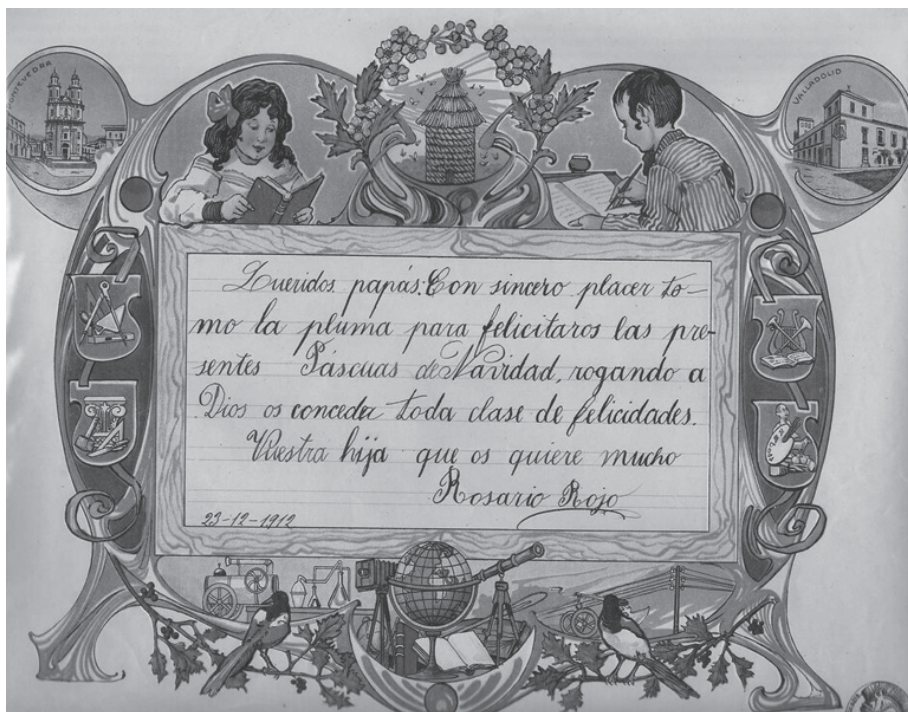 PONTEVEDRA
VALLADOLID
Queridos papás: Con sincero placer to-
mo la pluma para felicitaros las pre-
sentes Páscuas de Navidad, rogando a
Dios os conceder toda clase de felicidades.
Vuestra hija que os quiere mucho
Rosario Rojo
23-12-1912